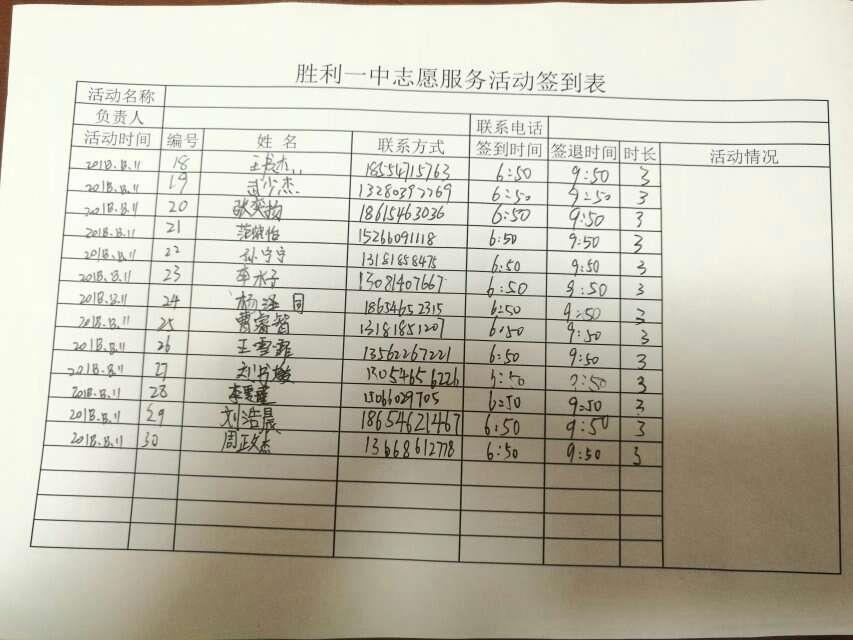 胜利一中志愿服务活动签到表
活动名称
负责人 联系电话
活动时间 编号 姓名 联系方式 签到时间 签退时间 时长 活动情况
2018.8.11 18 18554715763 6:50 9:50 3
2018.8.11 19 武少杰 13280397769 6:50 9:50 3
2018.8.11 20 张奕扬 18615463036 6:50 9:50 3
2018.8.11 21 15266091118 6:50 9:50 3
2018.8.11 22 孙宁宁 13181858475 6:50 9:50 3
2018.8.11 23 李水子 13081407667 6:50 9:50 3
2018.8.11 24 杨泽同 18654652315 6:50 9:50 3
2018.8.11 25 曹睿智 13181851207 6:50 9:50 3
2018.8.11 26 王雪霏 13562267221 6:50 9:50 3
2018.8.11 27 刘书敏 13054656226 6:50 9:50 3
2018.8.11 28 15066029705 6:50 9:50 3
2018.8.11 29 刘浩晨 18654621467 6:50 9:50 3
2018.8.11 30 周政杰 13668612778 6:50 9:50 3